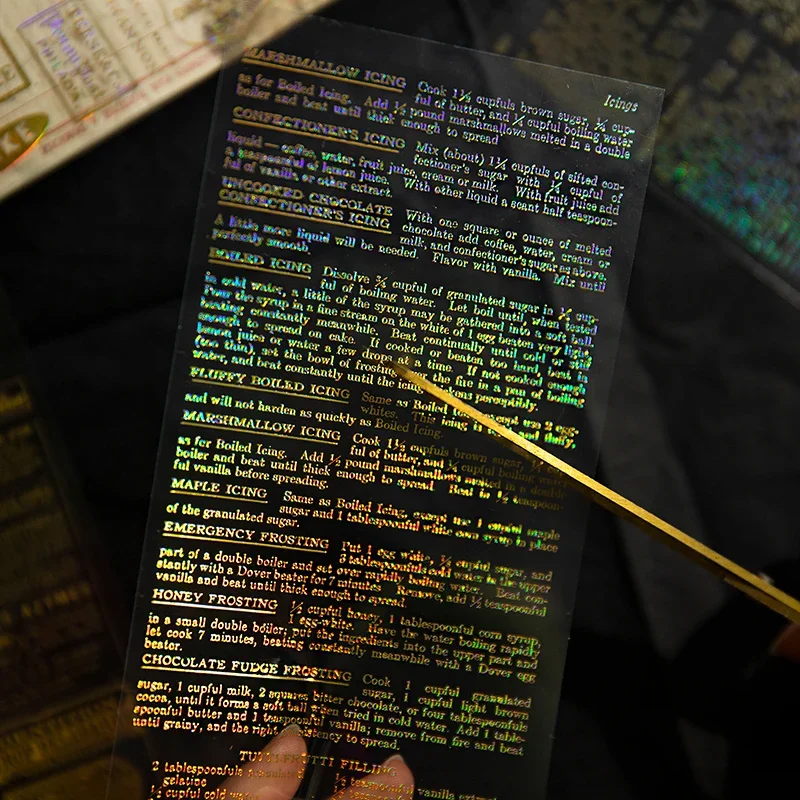 Icings
MARSHMALLOW ICING Cook 1½ cupfuls brown sugar, ¼ cup-
ful of butter, and ¼ cupful boiling water
as for Boiled Icing. Add ½ pound marshmallows melted in a double
boiler and beat until thick enough to spread
CONFECTIONER'S ICING Mix (about) 1¼ cupfuls of sifted con-
fectioner's sugar with ¼ cupful of
liquid — coffee, water, fruit juice, cream or milk. With fruit juice add
a teaspoonful of lemon juice. With other liquid a scant half teaspoon-
ful of vanilla or other extract.
UNCOOKED CHOCOLATE
CONFECTIONER'S ICING With one square or ounce of melted
chocolate add coffee, water, cream or
milk, and confectioner's sugar as above
A little more liquid will be needed. Flavor with vanilla. Mix until
perfectly smooth.
BOILED ICING Dissolve ¾ cupful of granulated sugar in ⅓ cup-
ful of boiling water. Let boil until, when tested
in cold water, a little of the syrup may be gathered into a soft ball.
Pour the syrup in a fine stream on the white of 1 egg beaten very light,
beating constantly meanwhile. Beat continually until cold or stiff
enough to spread on cake. If cooked or beaten too hard, beat in
lemon juice or water a few drops at a time. If not cooked enough
(too thin), set the bowl of frosting over the fire in a pan of boiling
water, and beat constantly until the icing perceptibly.
FLUFFY BOILED ICING Same as Boiled except use 2 egg-
whites. This icing is and fluffy,
and will not harden as quickly as Boiled Icing.
MARSHMALLOW ICING Cook 1½ cupfuls brown sugar, ¼ cup-
ful of butter, and ¼ cupful boiling water
as for Boiled Icing. Add ½ pound marshmallows melted in a double
boiler and beat until thick enough to spread. Beat in ½ teaspoon-
ful vanilla before spreading.
MAPLE ICING Same as Boiled Icing, except use 1 cupful maple
sugar and 1 tablespoonful white corn syrup in place
of the granulated sugar.
EMERGENCY FROSTING Put 1 egg white, ½ cupful sugar, and
3 tablespoonfuls cold water in the upper
part of a double boiler and set over rapidly boiling water. Beat con-
stantly with a Dover beater for 7 minutes. Remove, add ½ teaspoonful
vanilla and beat until thick enough to spread.
HONEY FROSTING ½ cupful honey, 1 tablespoonful corn syrup,
1 egg-white. Have the water boiling rapidly
in a small double boiler; put the ingredients into the upper part and
let cook 7 minutes, beating constantly meanwhile with a Dover egg
beater.
CHOCOLATE FUDGE FROSTING Cook 1 cupful granulated
sugar, 1 cupful light brown
sugar, 1 cupful milk, 2 squares bitter chocolate, or four tablespoonfuls
cocoa, until it forms a soft ball when tried in cold water. Add 1 table-
spoonful butter and 1 teaspoonful vanilla; remove from fire and beat
until grainy, and the right consistency to spread.
TUTTI-FRUTTI FILLING
2 tablespoonfuls granulated ½ teaspoonful vanilla extract
gelatine
½ cupful cold water